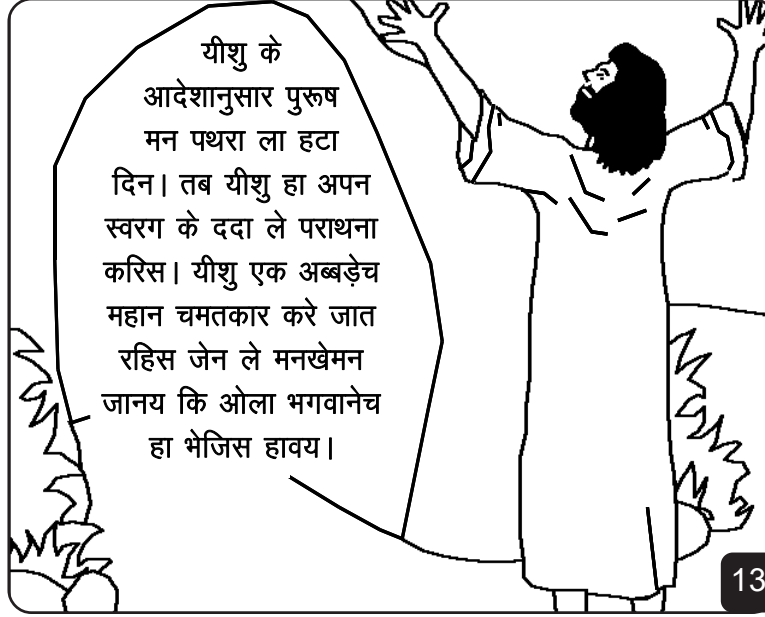 यीशु के
आदेशानुसार पुरूष
मन पथरा ला हटा
दिन। तब यीशु हा अपन
स्वरग के ददा ले पराथना
करिस। यीशु एक अब्बड़ेच
महान चमतकार करे जात
रहिस जेन ले मनखेमन
जानय कि ओला भगवानेच
हा भेजिस हावय।
13